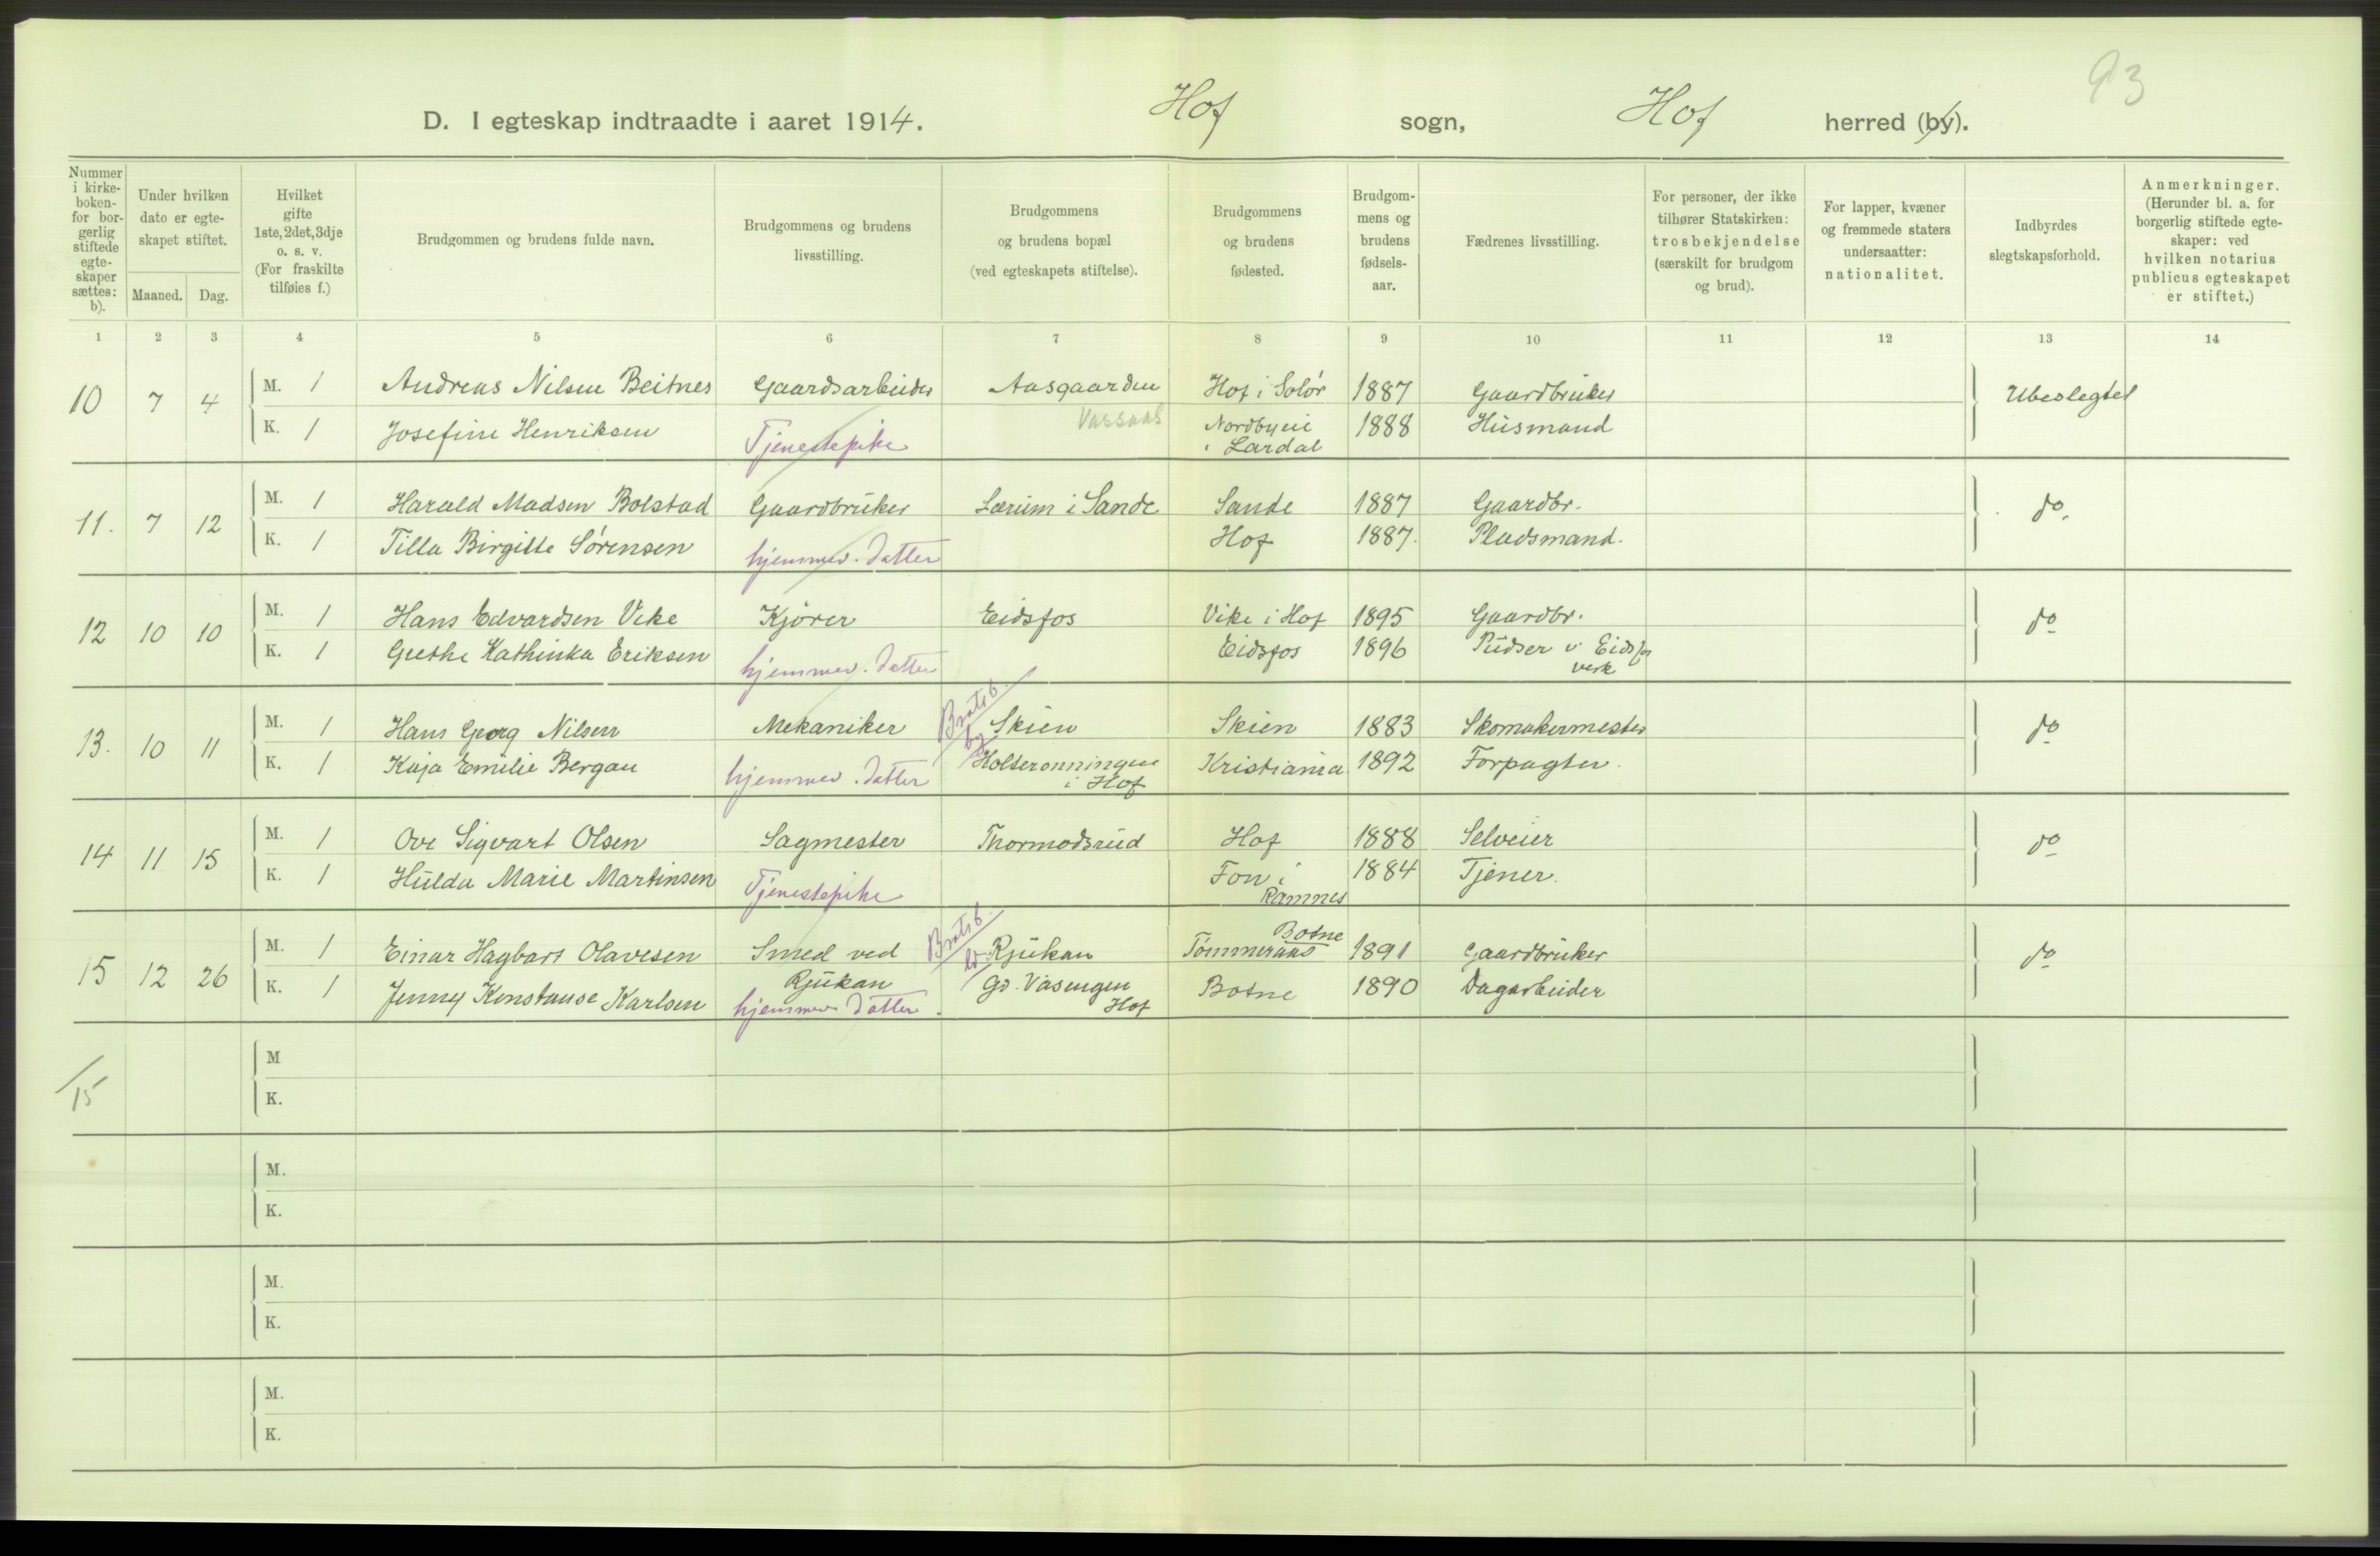 93
D. I egteskap indtraadte i aaret 1914. Hof sogn, Hof herred (by).
Nummer i kirke-boken- for bor-gerlig stiftede egte-skaper sættes: b).
Under hvilken dato er egte-skapet stiftet.
Maaned. Dag.
Hvilket gifte 1ste, 2det, 3dje o. s. v. (For fraskilte tilføies f.)
Brudgommen og brudens fulde navn.
Brudgommens og brudens livsstilling.
Brudgommens og brudens bopæl (ved egteskapets stiftelse).
Brudgommens og brudens fødested.
Brudgom-mens og brudens fødsels-aar.
Fædrenes livsstilling.
For personer, der ikke tilhører Statskirken: trosbekjendelse (særskilt for brudgom og brud).
For lapper, kvæner og fremmede staters undersaatter: nationalitet.
Indbyrdes slegtskapsforhold.
Anmerkninger. (Herunder bl. a. for borgerlig stiftede egte-skaper: ved hvilken notarius publicus egteskapet er stiftet.)
1 2 3 4 5 6 7 8 9 10 11 12 13 14
10 7 4 M. 1 Andreas Nilsen Beitnes Gaardsarbeider Aasgaarden Hof i Solør 1887 Gaardbruker Ubeslegtet
Vassaas
K. 1 Josefine Henriksen Tjenestepike Nordbyeie i Lardal 1888 Husmand
11. 7 12 M. 1 Harald Madsen Bolstad Gaardbruker Lærum i Sande Sande 1887 Gaardbr. do.
K. 1 Tilla Birgitte Sørensen hjemmev. datter Hof 1887. Pladsmand.
12 10 10 M. 1 Hans Edvardsen Vike Kjører Eidsfos Vike i Hof 1895 Gaardbr. do
K. 1 Grethe Kathinka Eriksen hjemmev. datter Eidsfos 1896 Pudser v. Eidsfos verk
13. 10 11 M. 1 Hans Georg Nilsen Mekaniker Bratsb. by Skien Skien 1883 Skomakermester do
K. 1 Kaja Emilie Bergan hjemmev. datter Holteronningen i Hof Kristiania 1892 Forpagter.
14 11 15 M. 1 Ove Sigvart Olsen Sagmester Thormodsrud Hof 1888 Selveier do
K. 1 Hulda Marie Martinsen Tjenestepike Fon i Ramnes 1884 Tjener.
15 12 26 M. 1 Einar Hagbart Olavesen Smed ved Rjukan Bratsb. Rjukan Tømmeraas Botne 1891 Gaardbruker do
K. 1 Jenny Konstanse Karlsen hjemmev. datter. Gd. Vasengen Hof Botne 1890 Dagarbeider
M
15
K.
M.
K.
M.
K.
M.
K.